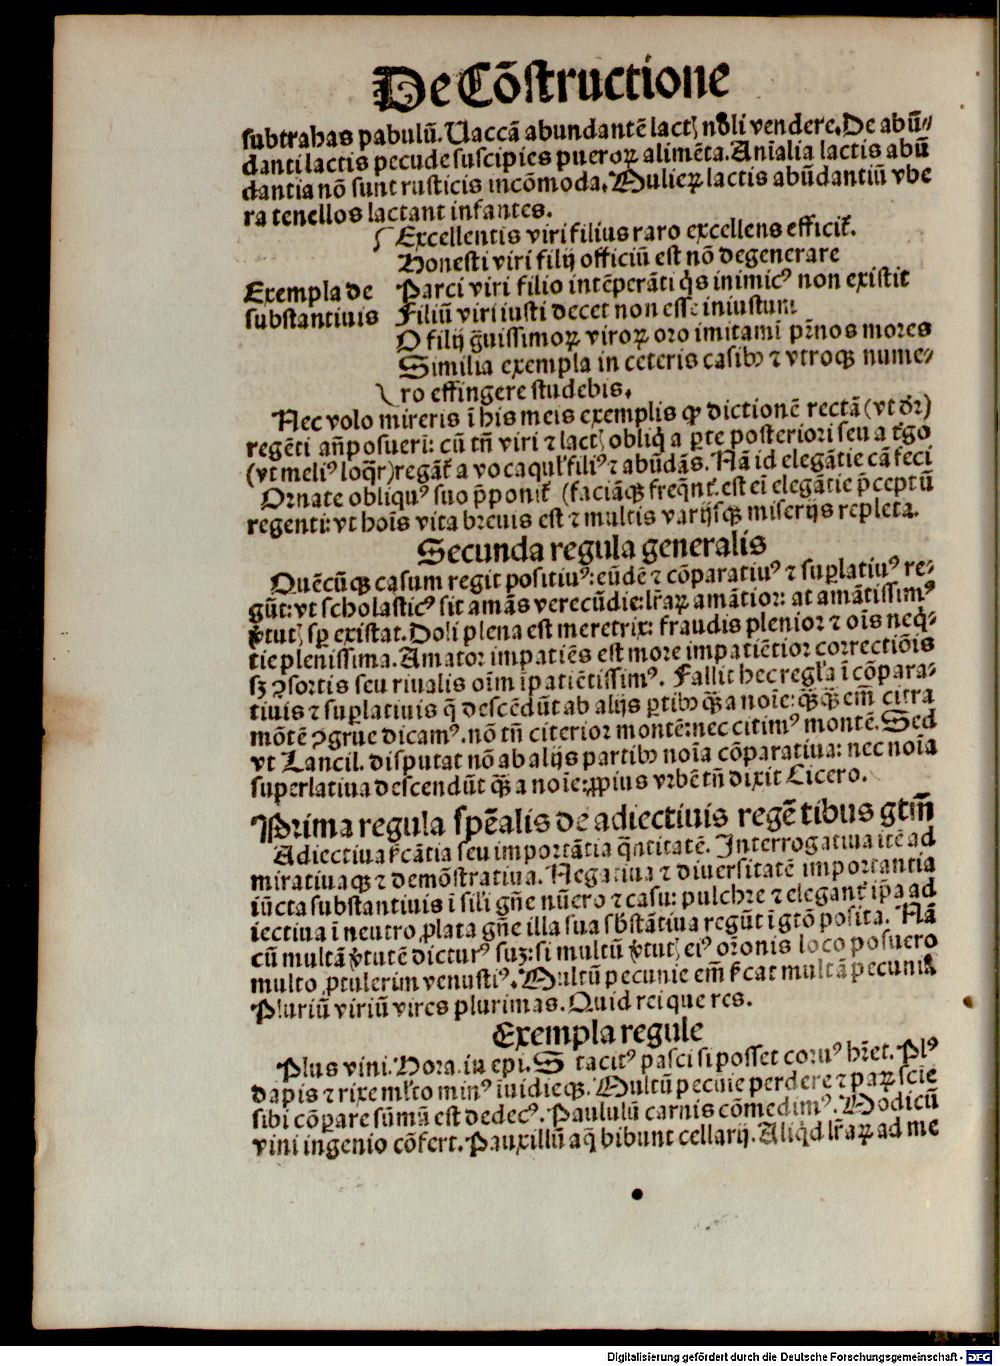 De Cõstructione
subtrahas pabulũ. Uaccã abundantẽ lactꝭ noli vendere. De abũ-
danti lactis pecude suscipies pueroꝝ alimẽta. Anĩalia lactis abũ
dantia nõ sunt rusticis incõmoda. Mulieꝝ lactis abũdantiũ vbe
ra tenellos lactant infantes.
Excellentis viri filius raro excellens efficit᷑.
Honesti viri filij officiũ est nõ degenerare
Exempla de
substantiuis
Parci viri filio intẽperãti q̇s inimicꝰ non existit
Filiũ viri iusti decet non esse iniustum
O filij g̃uissimoꝝ viroꝝ oro imitamĩ pr̃nos mores
Similia exempla in ceteris casibꝫ ⁊ vtroqꝫ nume-
ro effingere studebis.
Nec volo mireris ĩ his meis exemplis ꝙ dictionẽ rectã (vt dr̃)
regẽti añposueri: cũ tñ viri ⁊ lactꝭ obliq̇ a ꝑte posteriori seu a t᷑go
(vt meliꝰ loq̃r) regãt᷑ a vocaqul᷑ filiꝰ ⁊ abũdãs. Nã id elegãtie cã feci
Ornate obliquꝰ suo p̃ponit᷑ (faciãqꝫ freq̃nt᷑. est eĩ elegãtie p̃ceptũ
regenti: vt hoĩs vita breuis est ⁊ multis varijsqꝫ miserijs repleta.
Secunda regula generalis
Quẽcũqꝫ casum regit positiuꝰ: eũdẽ ⁊ cõparatiuꝰ ⁊ suꝑlatiuꝰ re-
gũt: vt scholasticꝰ sit amãs verecũdie: lr̃aꝝ amãtior: at amãtissimꝰ
v̓tutꝭ sꝑ existat. Doli plena est meretrix: fraudis plenior ⁊ oĩs neq̇-
tie plenissima. Amator impatiẽs est more impatiẽtior correctiõis
sꝫ ꝯsortis seu riualis oĩm ĩpatiẽtissimꝰ. Fallit hec regl᷑a ĩ cõpara-
tiuis ⁊ suꝑlatiuis q̃ descẽdũt ab alijs ꝑtibꝫ qꝫ̃ a noĩe: qꝫ̃qꝫ̃ em̃ citra
mõtẽ ꝯgrue dicamꝰ. nõ tñ citerior montẽ: nec citimꝰ montẽ. Sed
vt Lancil. disputat nõ ab alijs partibꝫ noĩa cõparatiua: nec noĩa
superlatiua descendũt qꝫ̃ a noĩe: ꝓpius vrbẽ tñ dixit Cicero.
Prima regula spẽalis de adiectiuis regẽtibus gtm̃
Adiectiua s᷑cãtia seu importãtia q̃ntitatẽ. Interrogatiua itẽ ad
miratiuaqꝫ ⁊ demõstratiua. Negatiua ⁊ diuersitatẽ importantia
iũcta substantiuis ĩ sil᷑i gñe nũero ⁊ casu: pulchre ⁊ elegant᷑ ip̃a ad
iectiua ĩ neutro ꝓlata gñe illa sua sb̃stãtiua regũt ĩ gtõ posita. Nã
cũ multã v̓tutẽ dicturꝰ suꝫ: si multũ v̓tutꝭ eiꝰ or̃onis loco posuero
multo ꝓtulerim venustiꝰ. Multũ pecunie em̃ s᷑cat multã pecuniã
Pluriũ viriũ vires plurimas. Quid rei que res.
Exempla regule
Plus vini. Hora. in epi. S tacitꝰ pasci si posset coruꝰ hr̃et. Plꝰ
dapis ⁊ rixe ml᷑to minꝰ ĩuidieqꝫ. Multũ pecuĩe perdere ⁊ paꝝ scie
sibi cõꝑare sũmũ est dedecꝰ. Paululũ carnis cõmedimꝰ. Modicũ
vini ingenio cõfert. Pauxillũ aq̃ bibunt cellarij. Aliq̇d lr̃aꝝ ad me
Digitalisierung gefördert durch die Deutsche Forschungsgemeinschaft - DFG